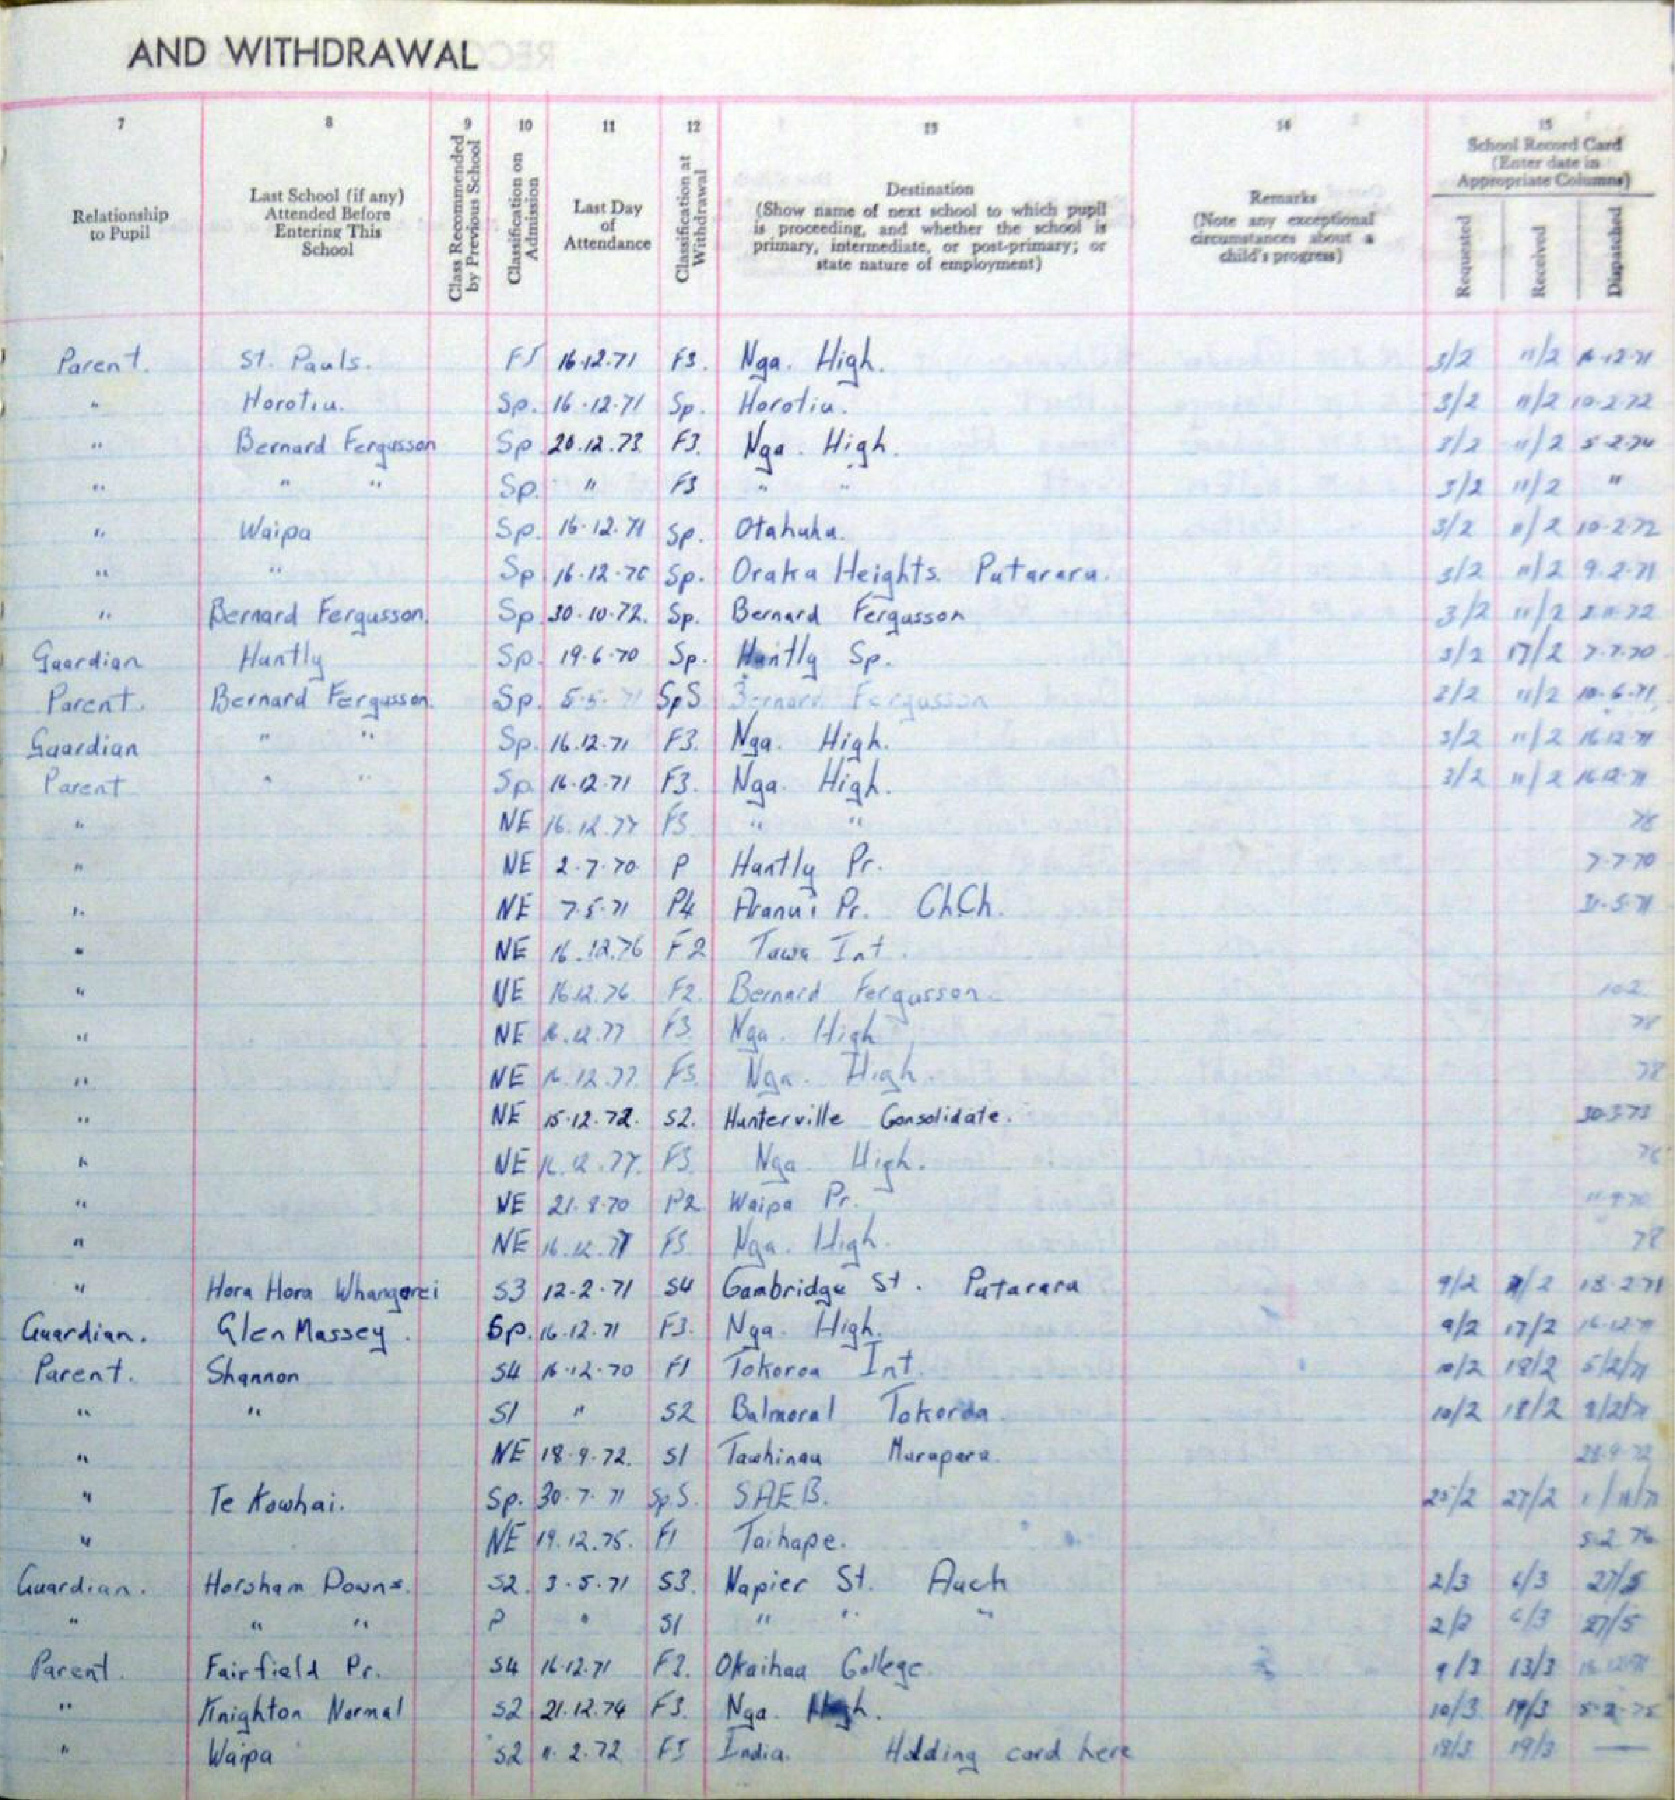 AND WITHDRAWAL
7 8 9 10 11 12 13 14 15
Relationship to Pupil
Last School (if any) Attended Before Entering This School
Class Recommended by Previous School
Classification on Admission
Last Day of Attendance
Classification at Withdrawal
Destination (Show name of next school to which pupil is proceeding, and whether the school is primary, intermediate, or post-primary; or state nature of employment)
Remarks (Note any exceptional circumstances about a child's progress)
School Record Card (Enter date in Appropriate Columns)
Requested Received Dispatched
Parent. St. Pauls. 16.12.71 F3. Nga. High. 3/2 11/2 16.12.71
" Horotiu. Sp. 16.12.71 Sp. Horotiu. 3/2 11/2 10.2.72
" Bernard Fergusson Sp 20.12.73 F3. Nga. High. 3/2 11/2 5.2.74
" " " Sp. " F3 " " 3/2 11/2 "
" Waipa Sp. 16.12.71 Sp. Otahuhu. 3/2 11/2 10-2-72
" " Sp 16.12.70 Sp. Oraka Heights. Putaruru. 3/2 11/2 9.2.71
" Bernard Fergusson. Sp 30.10.72. Sp. Bernard Fergusson 3/2 11/2 2.11.72
Guardian Huntly Sp. 19.6.70 Sp. Huntly Sp. 3/2 17/2 7.7.70
Parent. Bernard Fergusson. Sp. 5.5.71 SpS Bernard Fergusson 3/2 11/2 10.6.71
Guardian " " Sp. 16.12.71 F3. Nga. High. 3/2 11/2 16.12.71
Parent " " Sp. 16.12.71 F3. Nga. High. 3/2 11/2 16.12.71
" NE 16.12.77 F3 " " 78
" NE 2.7.70 P Huntly Pr. 7.7.70
" NE 7.5.71 P4 Aranui Pr. ChCh. 31.5.71
" NE 16.12.76 F2 Tawa Int.
" NE 16.12.76 F2. Bernard Fergusson.
" NE 16.12.77 F3 Nga. High 78
" NE 16.12.77. F3. Nga. High. 78
" NE 15.12.72. S2. Hunterville Consolidate. 30.3.73
" NE 16.12.77. F3 Nga High. 78
" NE 21.8.70 P2 Waipa Pr. 11.9.70
" NE 16.12.77 F3 Nga. High. 78
" Hora Hora Whangarei S3 12.2.71 S4 Cambridge St. Putaruru 9/2 /2
Guardian. Glen Massey. Sp. 16.12.71 F3. Nga. High. 9/2 17/2 16.12.71
Parent. Shannon S4 16.12.70 F1 Tokoroa Int. 10/2 18/2 5/2/71
" " S1 " S2 Balmoral Tokoroa 10/2 18/2
" NE 18.9.72. S1 Tawhiuau Murupara. 28.9.72
" Te Kowhai. Sp. 30.7.71 Sp.S. S.A.E.B. 25/2 27/2
" NE 19.12.75. F1 Taihape. 5.2.76
Guardian. Horsham Downs. S2. 3.5.71 S3. Napier St. Auck 2/3 6/3 27/5
" " " P " S1 " " " 2/3 6/3 27/5
Parent. Fairfield Pr. S4 16.12.71 F2. Okaihau College. 9/3 13/3
" Knighton Normal S2 21.12.74 F3. Nga High. 10/3 19/3 5.2.75
" Waipa S2 11.2.72 India. Holding card here 18/3 19/3 —